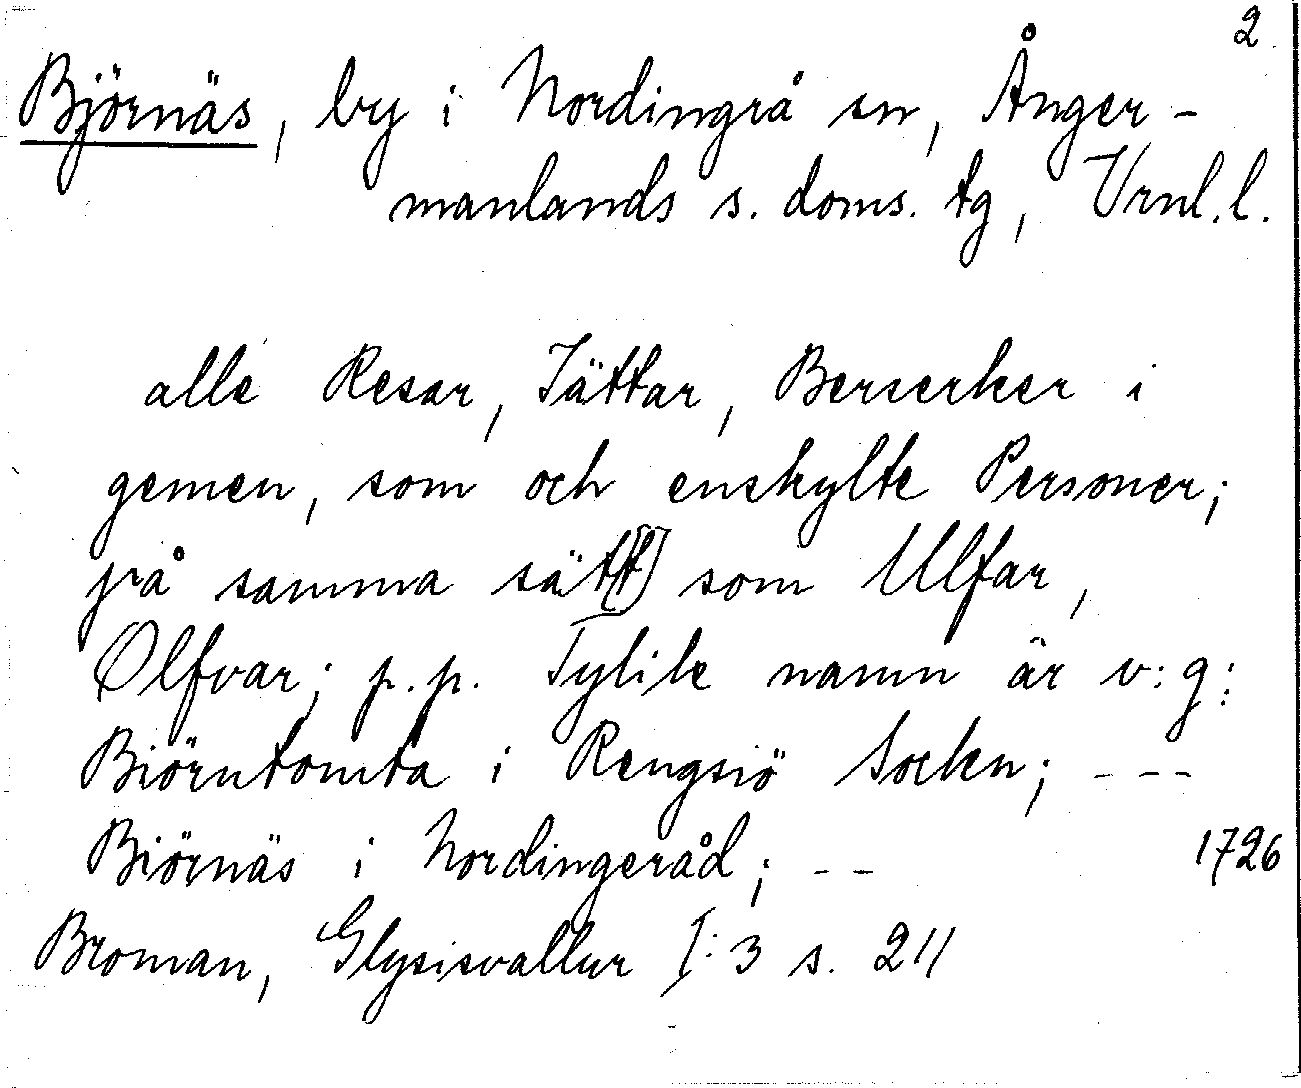 2
Björnäs, by i Nordingrå sn, Ånger-
manlands s. doms. tg, Vrnl. l.
alle Resar, Jättar, Berserker i
gemen, som och enskylte Personer;
på samma sätt[t] som Ulfar,
Olfvar; p.p. Tylike namn är v: g:
Biörntomta i Rengsiö Sockn; ---
Biörnäs i Nordingeråd; -- 1726
Broman, Glysisvallur I: 3 s. 211